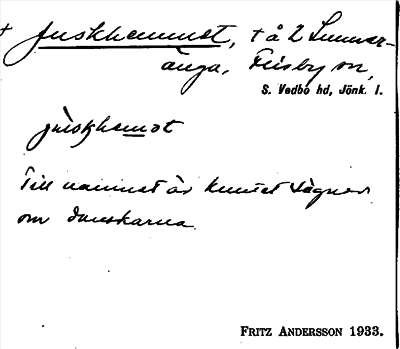 + Juskhemmet, + å 2 Sunnar-
änga, Flisby sn,
S. Vedbo hd, Jönk. l.
juskhemot
Till namnet är knutet sägner
om danskarna
FRITZ ANDERSSON 1933.